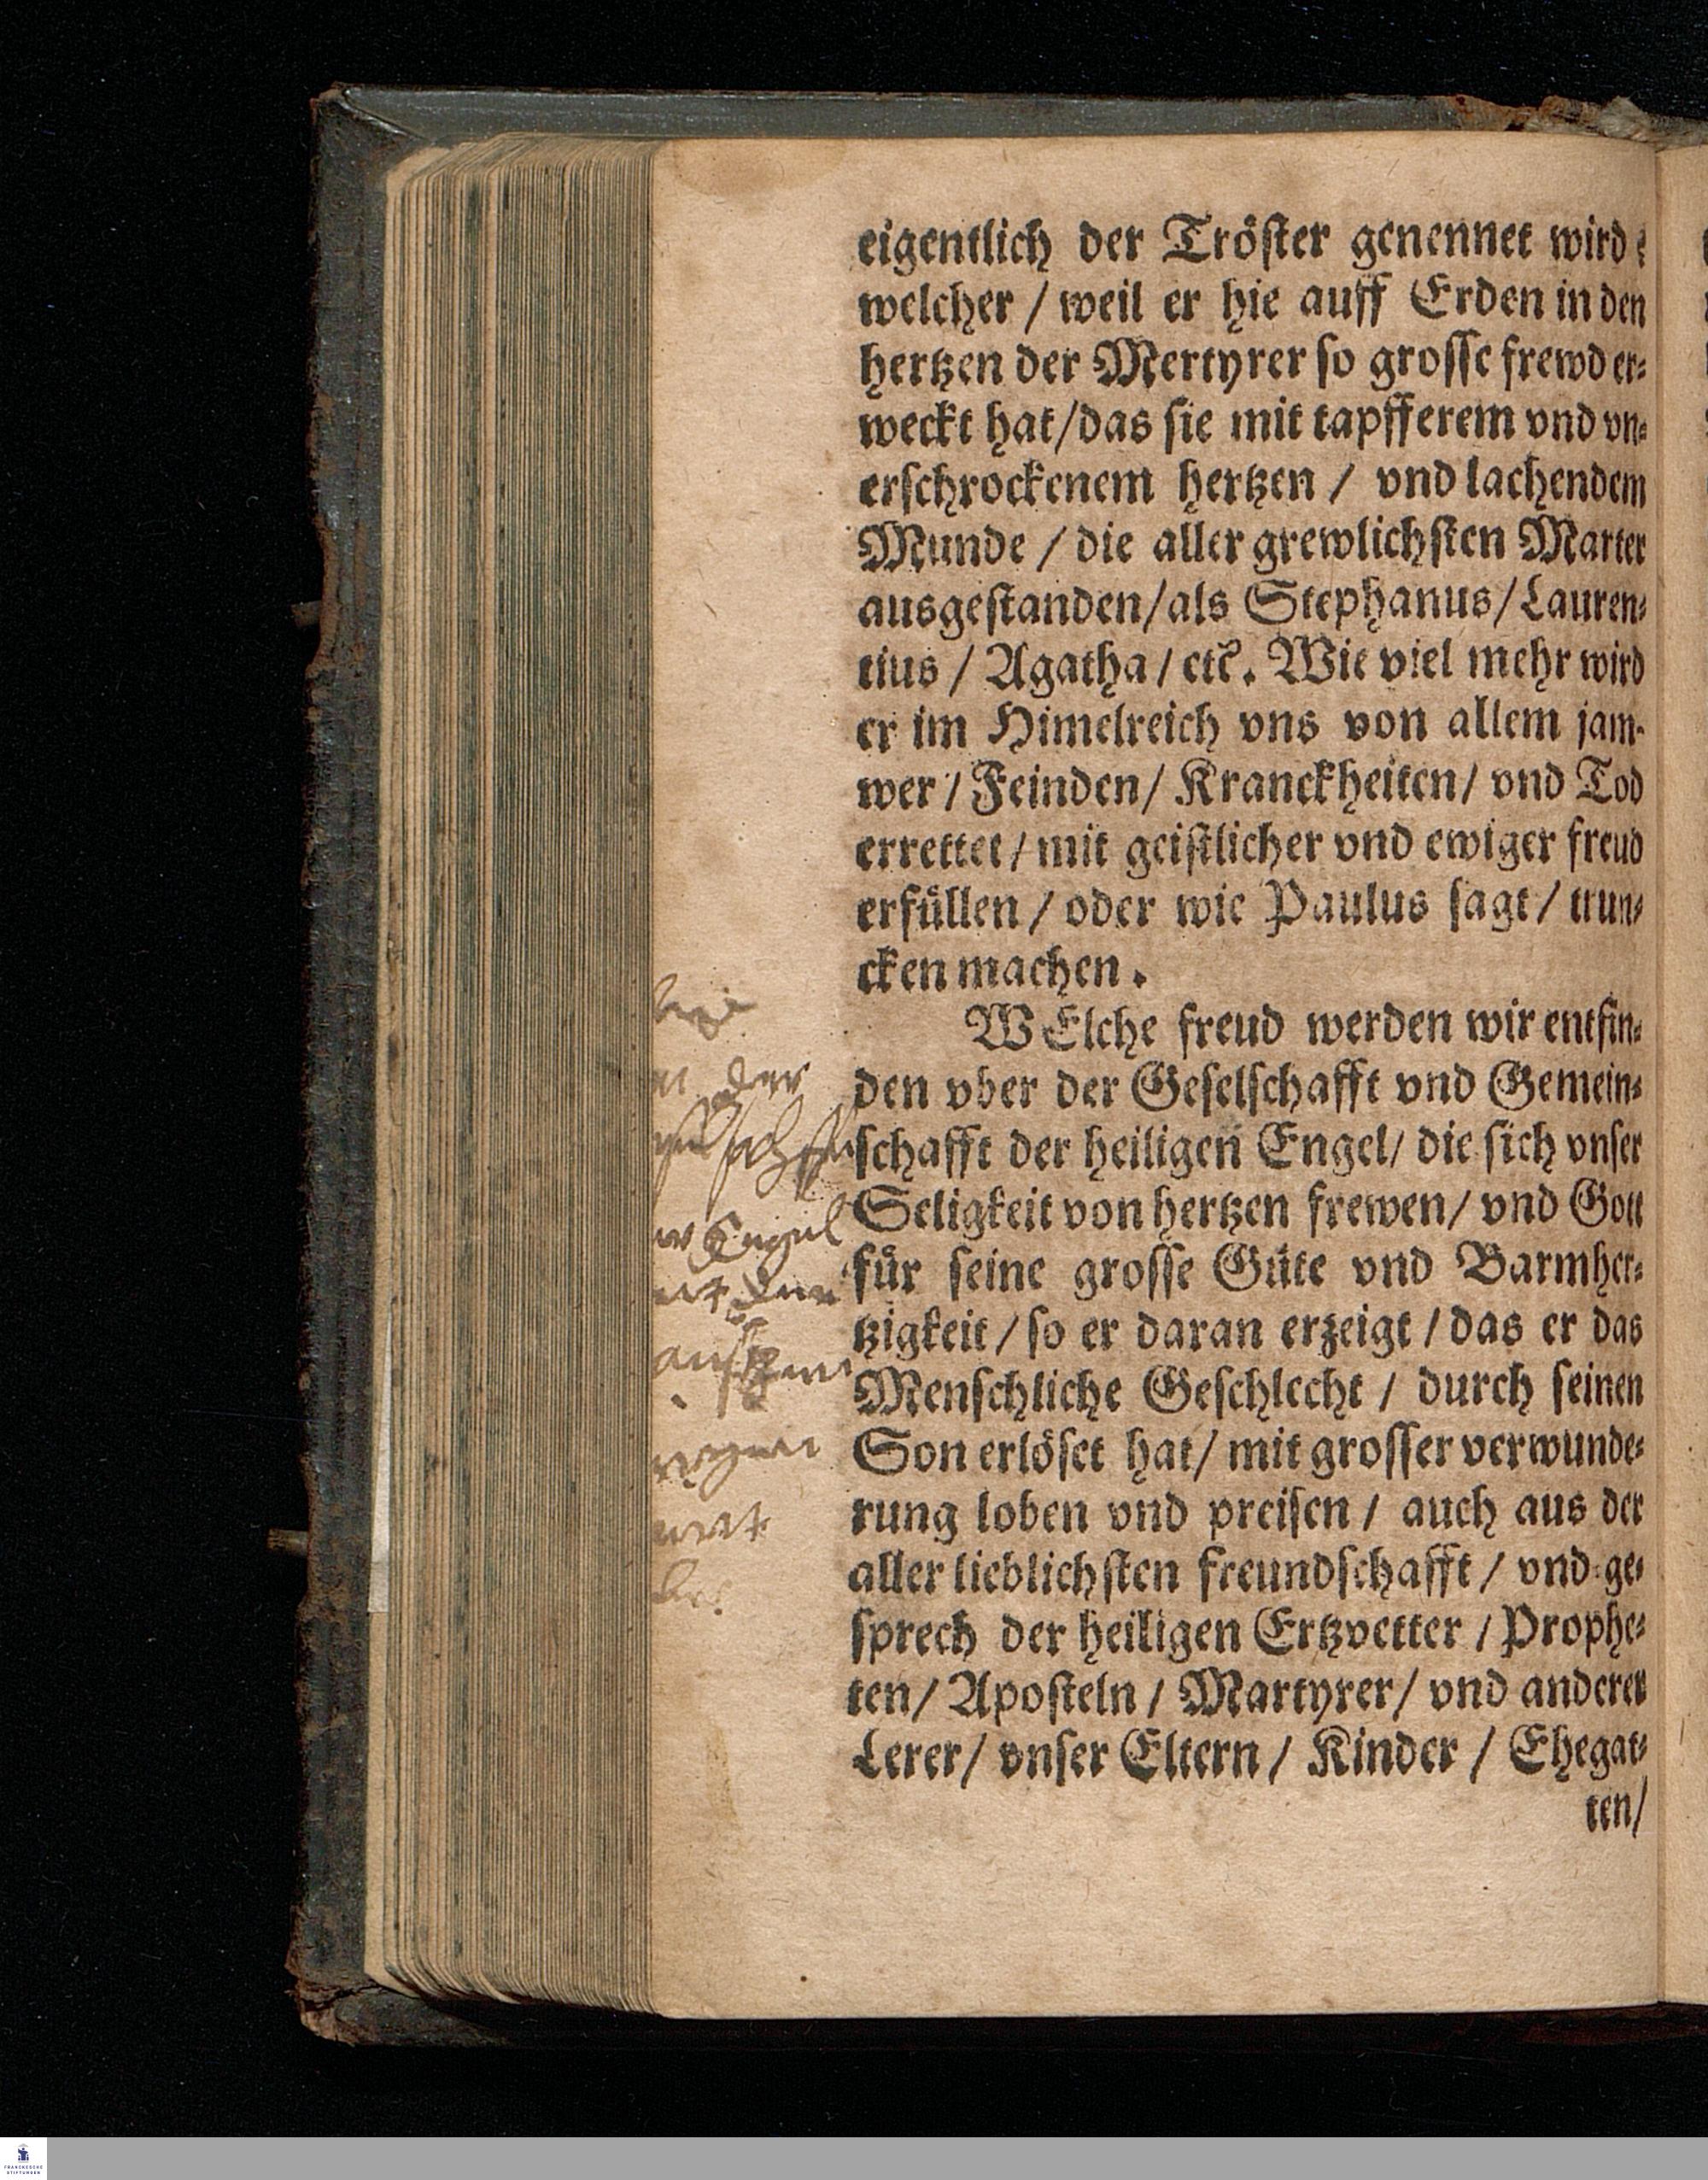 eigentlich der Tröster genennet wird
welcher / weil er hie auff Erden in den
hertzen der Mertyrer so grosse frewd er-
weckt hat / das sie mit tapfferem vnd vn-
erschrockenem hertzen / vnd lachendem
Munde / die aller grewlichsten Marter
ausgestanden / als Stephanus / Lauren-
tius / Agatha / etc. Wie viel mehr wird
er im Himelreich vns von allem jam-
wer / Feinden / Kranckheiten / vnd Tod
errettet / mit geistlicher vnd ewiger freud
erfüllen / oder wie Paulus sagt / trun-
cken machen.
WElche freud werden wir entfin-
den vber der Geselschafft vnd Gemein-
schafft der heiligen Engel / die sich vnser
Seligkeit von hertzen frewen / vnd Gott
für seine grosse Güte vnd Barmher-
tzigkeit / so er daran erzeigt / das er das
Menschliche Geschlecht / durch seinen
Son erlöset hat / mit grosser verwunde-
rung loben vnd preisen / auch aus der
aller lieblichsten freundschafft / vnd ge-
sprech der heiligen Ertzvetter / Prophe-
ten / Aposteln / Martyrer / vnd anderer
Lerer / vnser Eltern / Kinder / Ehegat-
ten /
der
Engel
FRANCKESCHE
STIFTUNGEN